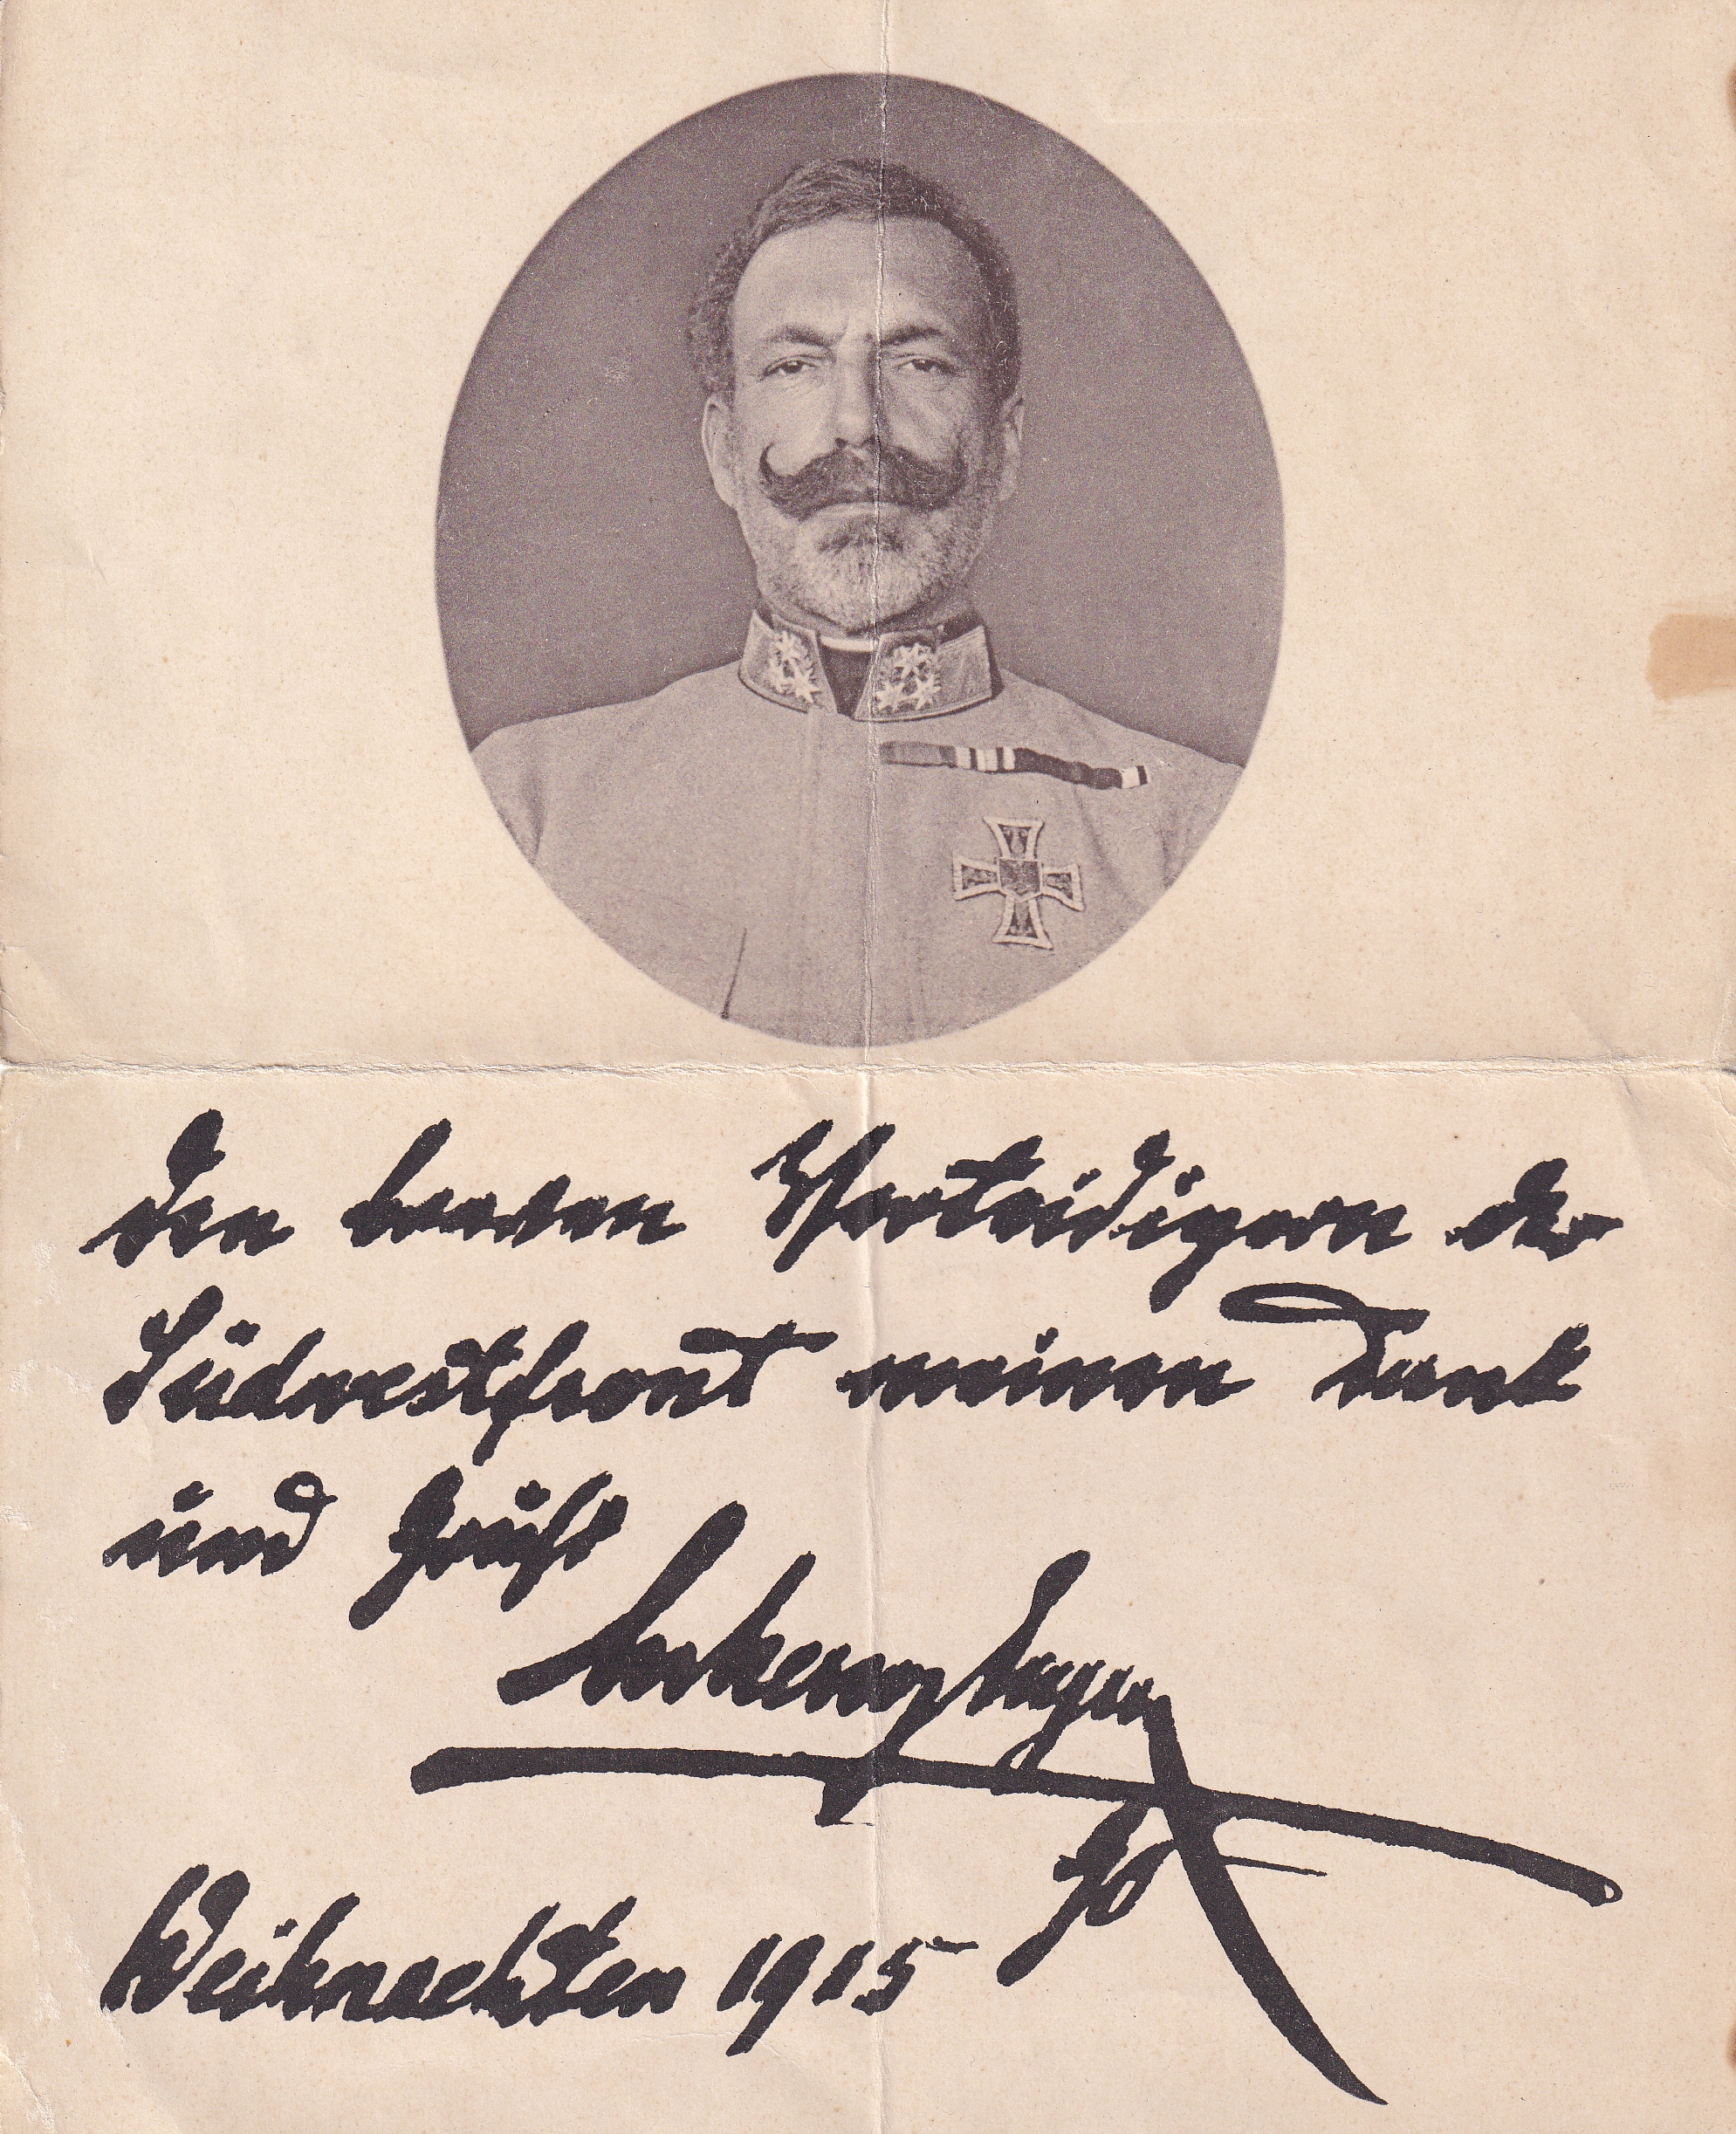 Den braven Verteidigern der
Südwestfront meinen Dank
und Gruß
Erzherzog Eugen
GO
Weihnachten 1915